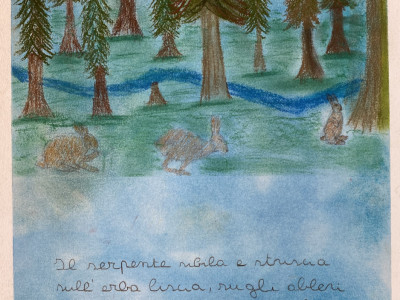 Il serpente sibila e striscia
sull'erba liscia, sugli alberi